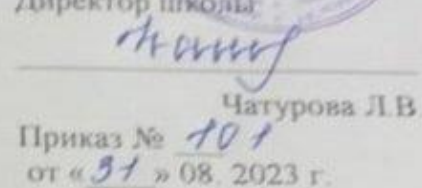 Директор школы
Чатурова Л.В
Приказ № 101
от « 31 » 08. 2023 г.